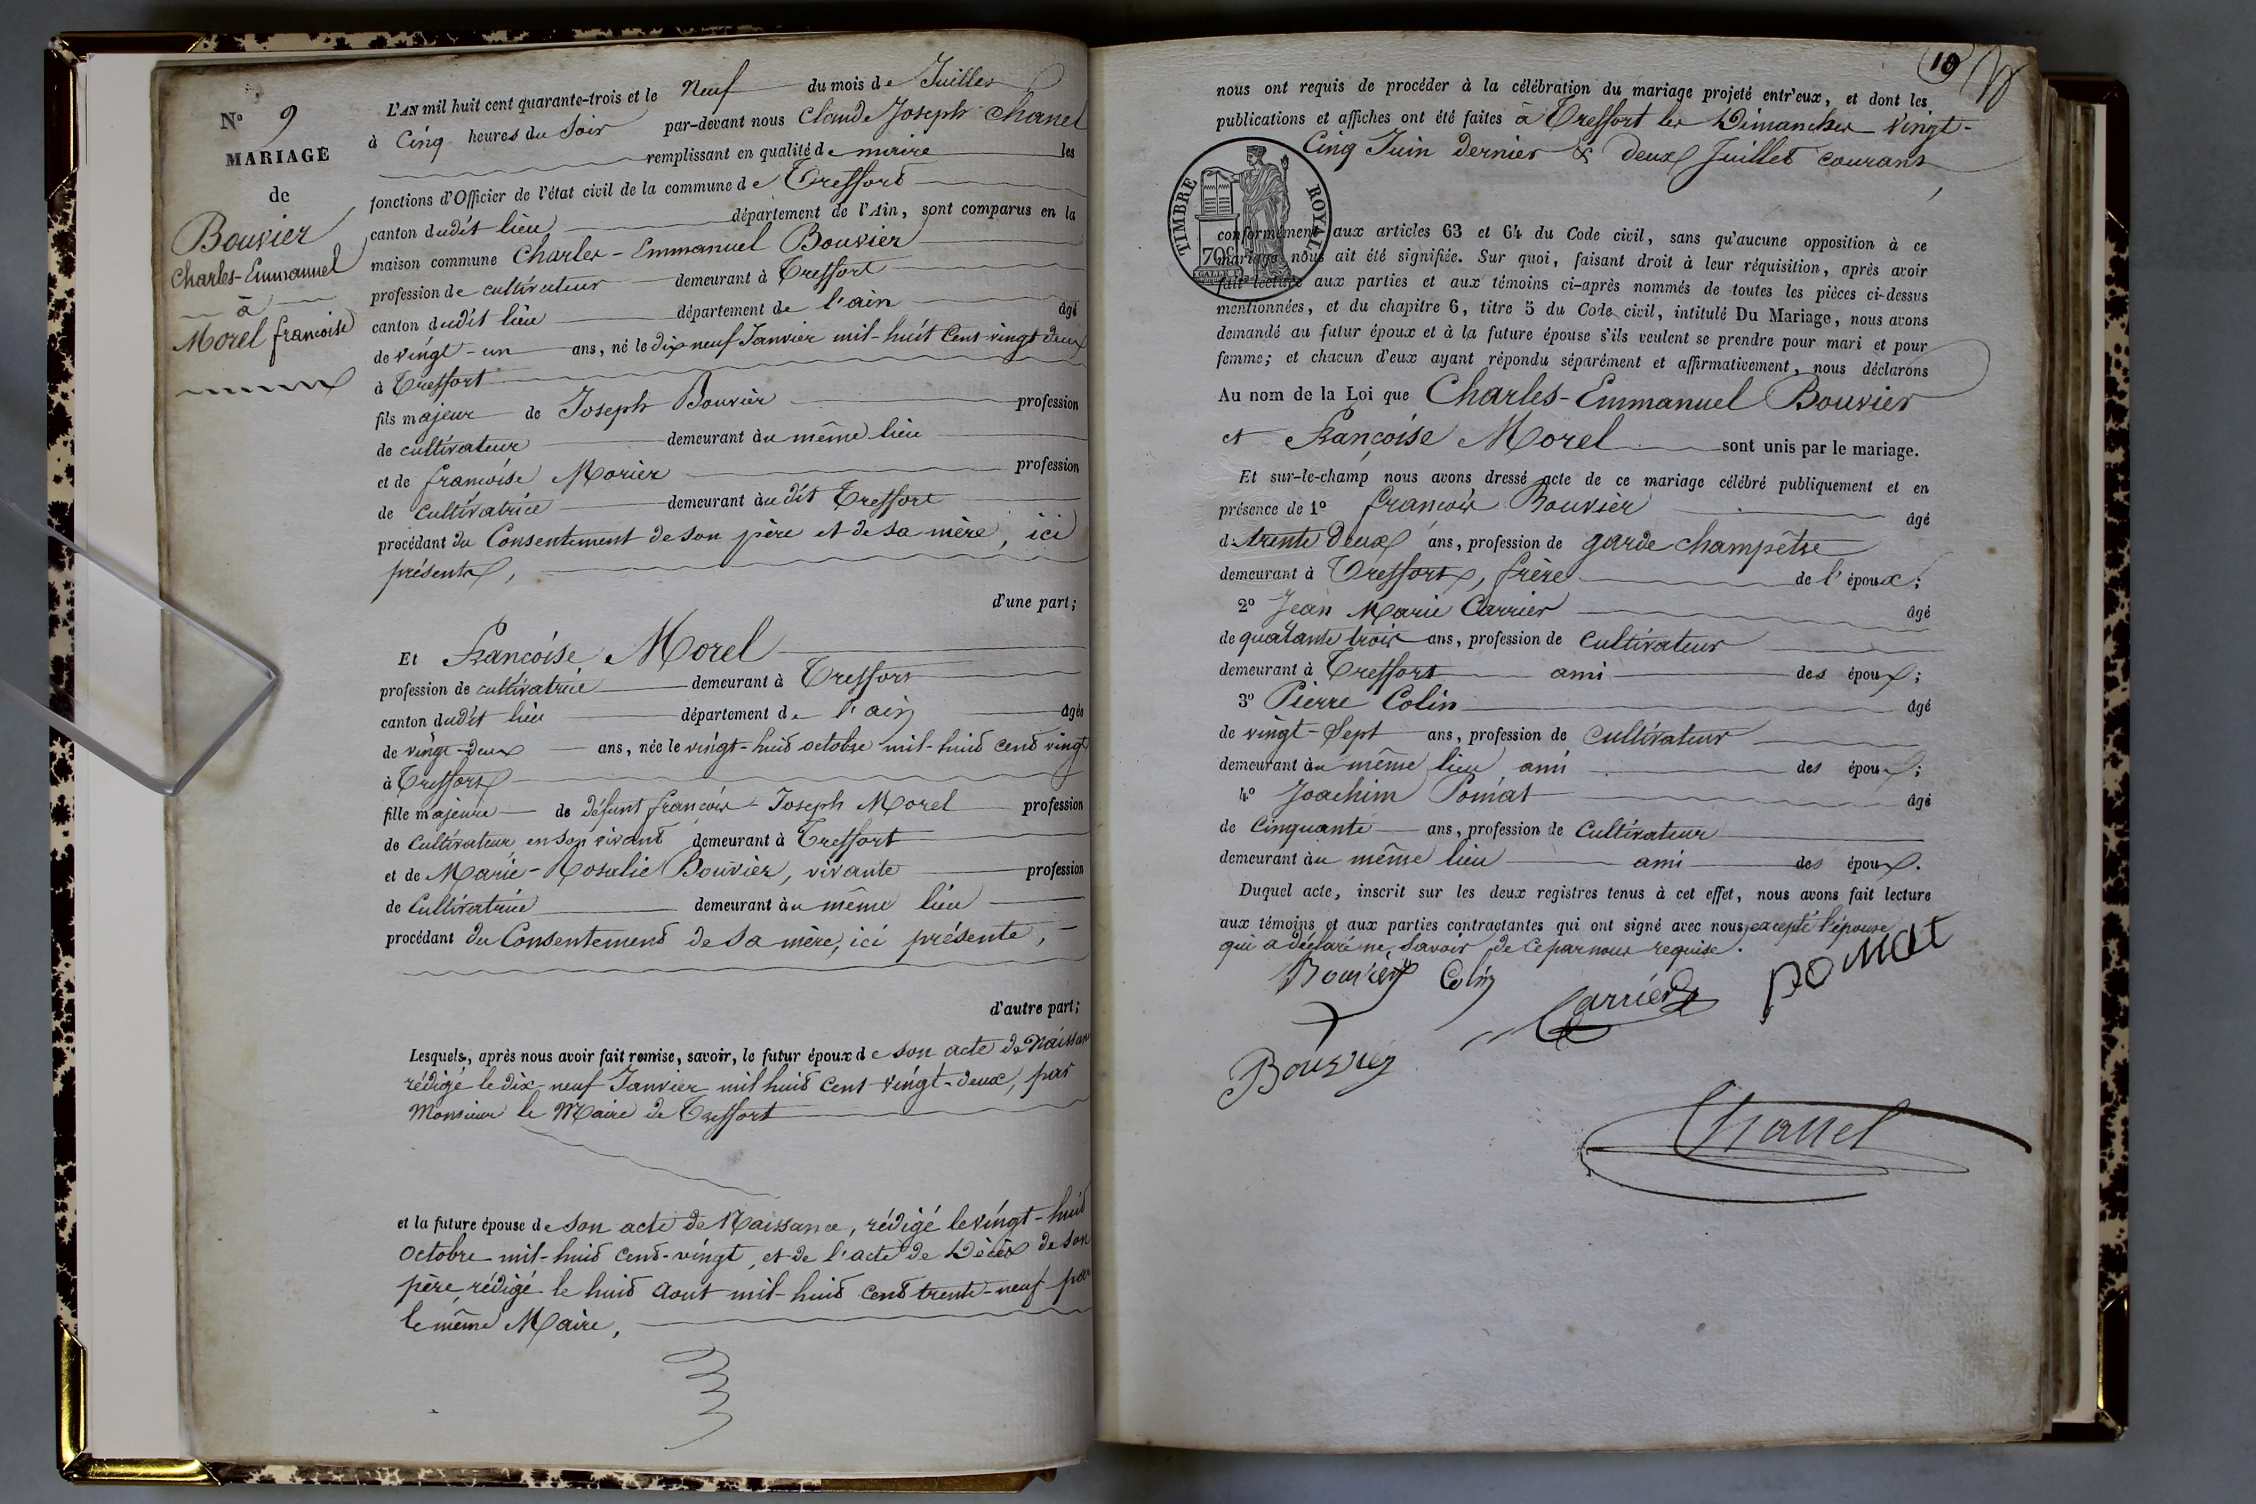 N° 9
MARIAGE
de
Bouvier
Charles-Emmanuel
à
Morel francoise
L'AN mil huit cent quarante-trois et le Neuf du mois de Juillet
à Cinq heures du Soir par-devant nous Claude Joseph Chanel
remplissant en qualité de maire les
fonctions d'Officier de l'état civil de la commune de Treffort
canton dudit lieu département de l'Ain, sont comparus en la
maison commune Charles-Emmanuel Bouvier
profession de cultivateur demeurant à Treffort
canton dudit lieu département de l'ain âgé
de vingt-un ans, né le dix neuf Janvier mil-huit Cent vingt deux
à Treffort
fils majeur de Joseph Bouvier profession
de cultivateur demeurant au même lieu
et de francoise Morier profession
de cultivatrice demeurant audit Treffort
procédant du Consentement de son père et de sa mère, ici
présents,
d'une part;
Et Francoise Morel
profession de cultivatrice demeurant à Treffort
canton dudit lieu département de l'ain âgée
de vingt-deux ans, née le vingt-huit octobre mil-huit cent vingt
à Treffort
fille majeure de défunt francois-Joseph Morel profession
de Cultivateur en son vivant demeurant à Treffort
et de Marie-Rosalie Bouvier, vivante profession
de Cultivatrice demeurant au même lieu
procédant du Consentement de sa mère, ici présente,
d'autre part;
Lesquels, après nous avoir fait remise, savoir, le futur époux de son acte de Naissan
rédigé le dix-neuf Janvier mil huit cent vingt-deux, par
Monsieur le Maire de Treffort
et la future épouse de son acte de Naissance, rédigé le vingt-huit
octobre mil-huit cent-vingt, et de l'acte de Décès de son
père, rédigé le huit aout mil-huit cent trente-neuf par
le même Maire,
10
nous ont requis de procéder à la célébration du mariage projeté entr'eux, et dont les
publications et affiches ont été faites à Treffort les Dimanches Vingt-
Cinq Juin dernier & deux Juillet courant
TIMBRE ROYAL
conformément aux articles 63 et 64 du Code civil, sans qu'aucune opposition à ce
mariage nous ait été signifiée. Sur quoi, faisant droit à leur réquisition, après avoir
fait lecture aux parties et aux témoins ci-après nommés de toutes les pièces ci-dessus
mentionnées, et du chapitre 6, titre 5 du Code civil, intitulé Du Mariage, nous avons
demandé au futur époux et à la future épouse s'ils veulent se prendre pour mari et pour
femme; et chacun d'eux ayant répondu séparément et affirmativement, nous déclarons
Au nom de la Loi que Charles-Emmanuel Bouvier
et Françoise Morel sont unis par le mariage.
Et sur-le-champ nous avons dressé acte de ce mariage célébré publiquement et en
présence de 1° francois Bouvier âgé
de trente deux ans, profession de garde champêtre
demeurant à Treffort, frère de l'époux;
2° Jean Marie Carrier âgé
de quarante trois ans, profession de cultivateur
demeurant à Treffort ami des époux;
3° Pierre Colin âgé
de vingt-Sept ans, profession de cultivateur
demeurant au même lieu, ami des époux;
4° Joachim Pomat âgé
de Cinquante ans, profession de Cultivateur
demeurant au même lieu ami des époux.
Duquel acte, inscrit sur les deux registres tenus à cet effet, nous avons fait lecture
aux témoins et aux parties contractantes qui ont signé avec nous, excepté l'épouse
qui a déclaré ne savoir de ce par nous requise.
Bouvier Colin
Carrier pomat
Bouvier
Chanel